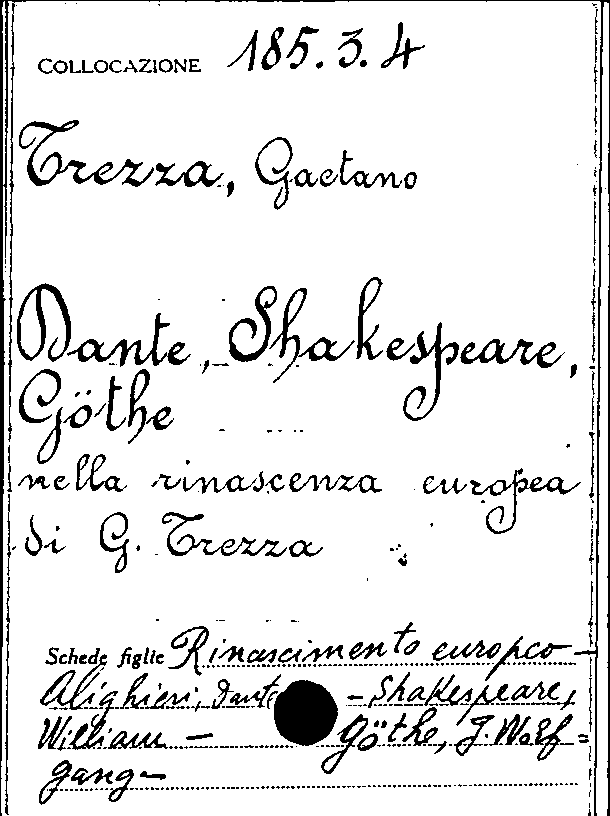 COLLOCAZIONE 185.3.4
Trezza, Gaetano
Dante, Shakespeare,
Göthe
nella rinascenza europea
di G. Trezza
Schede figlie Rinascimento europeo –
Alighieri, Dante – Shakespeare,
William – Göthe, J. Wolf=
gang –